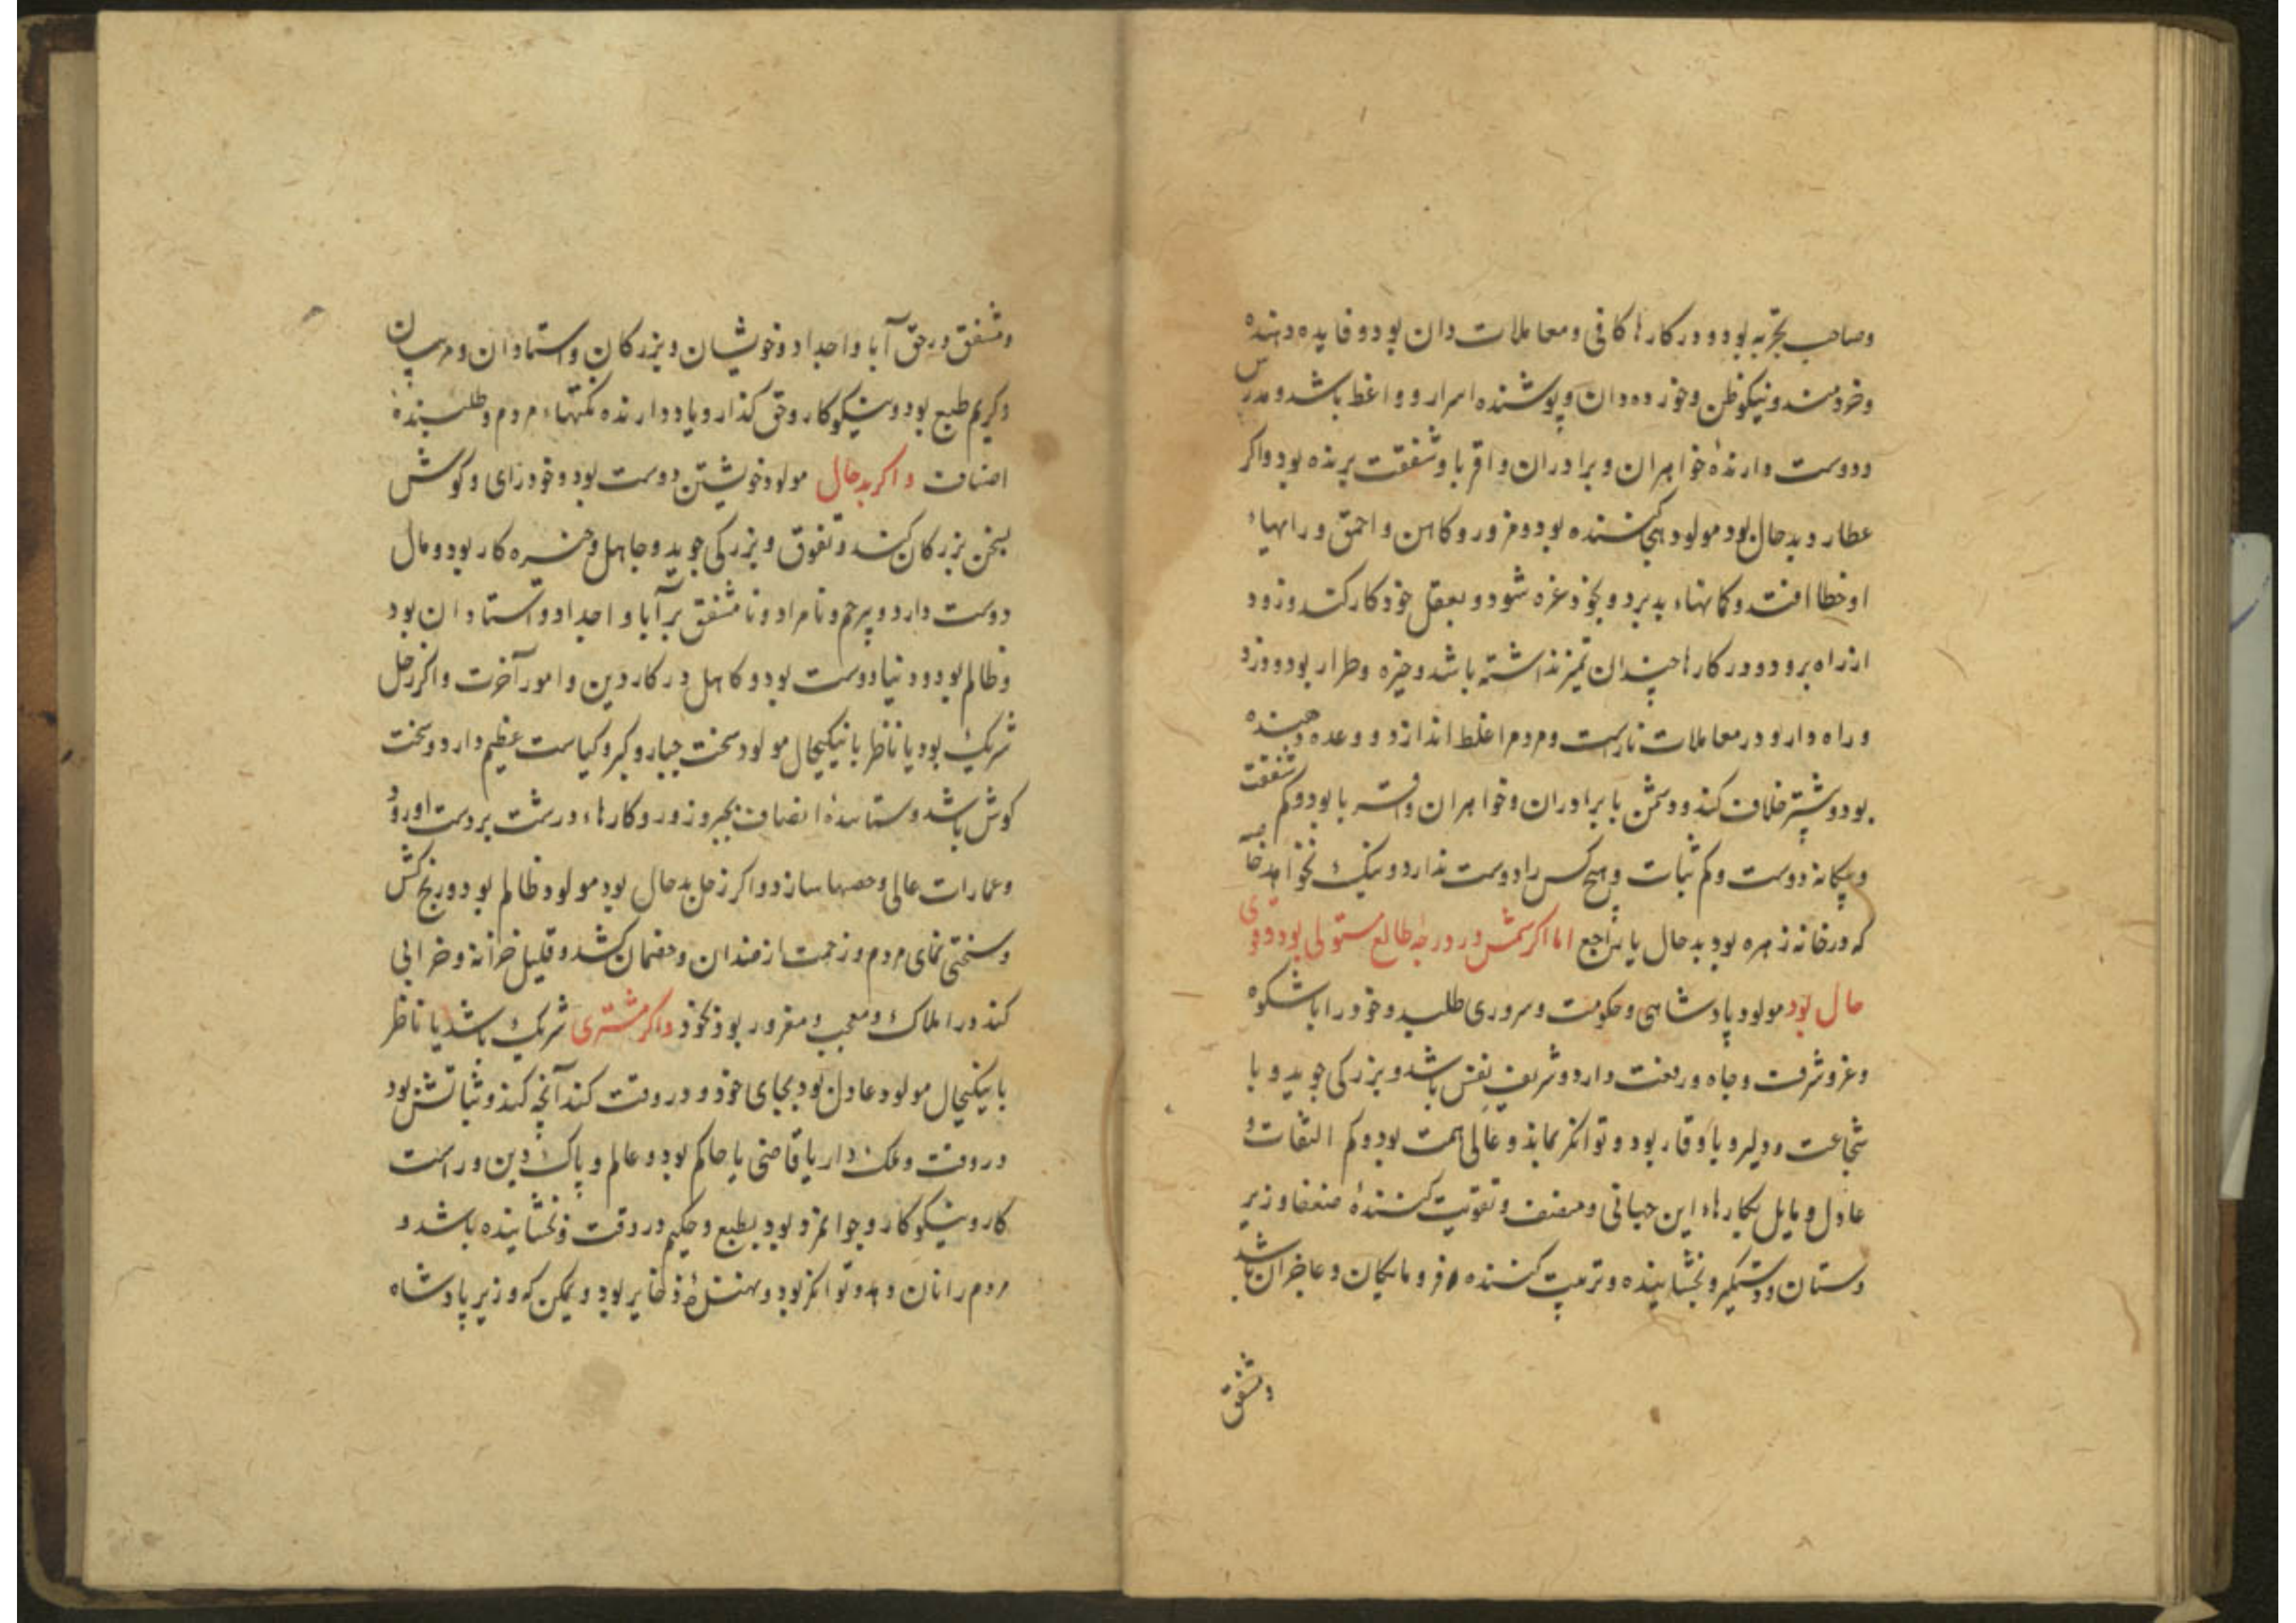 وصاحب تجربه بود و در کارها کافی و معاملات دان بود و فایده دهنده
و خردمند و نیکوظن و خورده دان و پوشنده اسرار و واعظ باشد و مدرس
و دوست دارندهٔ خواهران و برادران و اقربا و شفقت برنده بود و اکر
عطارد بدحال بود مولود هجی کننده بود و مزور و کاهن و احمق و رایهاء
او خطا افتد و کمانهاء بد برد و بخود غره شود و بعقل خود کار کند و زود
از راه برود و در کارها چندان تمیز نداشته باشد و خیره و طرار بود و دزد
و راه دار و در معاملات ناراست و مردم را غلط اندازد و وعده دهنده
بود و بیشتر خلاف کند و دشمن با برادران و خواهران و اقربا بود و کم شفقت
و بیکانه دوست و کم ثبات و هیچ کس را دوست ندارد و نیک نخواهد خاصه
که در خانه زهره بود بدحال یا راجع اما اکر شمس در درجهٔ طالع مستولی بود و قوی
حال بود مولود پادشاهی و حکومت و سروری طلبد و خود را باشکوه
و عز و شرف و جاه و رفعت دارد و شریف نفس باشد و بزرکی جوید و با
شجاعت و دلیر و با وقار بود و توانکر بماند و عالی همت بود و کم التفات و
عادل و مایل بکارهاء این جهانی و منصف و تقویت کنندهٔ ضعفا و زیر
دستان و دستکیر و بخشاینده و تربیت کننده فرومایکان و عاجزان باشد
ومشفق
ومشفق در حق آبا و اجداد و خویشان و بزرکان و استادان و مربیان
و کریم طبع بود و نیکوکار و حق کذار و یاد دارنده نکتهاء مردم و طلبندهٔ
انصاف و اکر بدحال مولود خویشتن دوست بود و خود رای و کوش
بسخن بزرکان نکند و تفوق و بزرکی جوید و جاهل و خیره کار بود و مال
دوست دارد و بیرحم و نامراد و نامشفق بر آبا و اجداد و استادان بود
و ظالم بود و دنیا دوست بود و کاهل در کار دین و امور آخرت و اکر زحل
شریک بود یا ناظر با نیکیحال مولود سخت جبار و کبر و کیاست عظیم دارد و سخت
کوش باشد و ستانندهٔ انصاف بجبر و زور و کارهاء درشت بر دست او رود
و عمارات عالی و حصنها سازد و اکر زحل بدحال بود مولود ظالم بود و رنج کش
و سختی نمای مردم و زحمت از فرزندان و خصمان کشد و قلیل خزانه و خرابی
کند در املاک و معجب و مغرور بود بخود و اکر مشتری شریک باشد یا ناظر
با نیکیحال مولود عادل بود بجای خود و در وقت کند آنچه کند و ثباتش بود
در وقت و ملک دار یا قاضی یا حاکم بود و عالم و پاک دین و راست
کار و نیکوکار و جوانمرد بود بطبع و حکیم در وقت و بخشاینده باشد و
مردم را نان دهد و توانکر بود و نهندهٔ ذخایر بود و ممکن که وزیر پادشاه